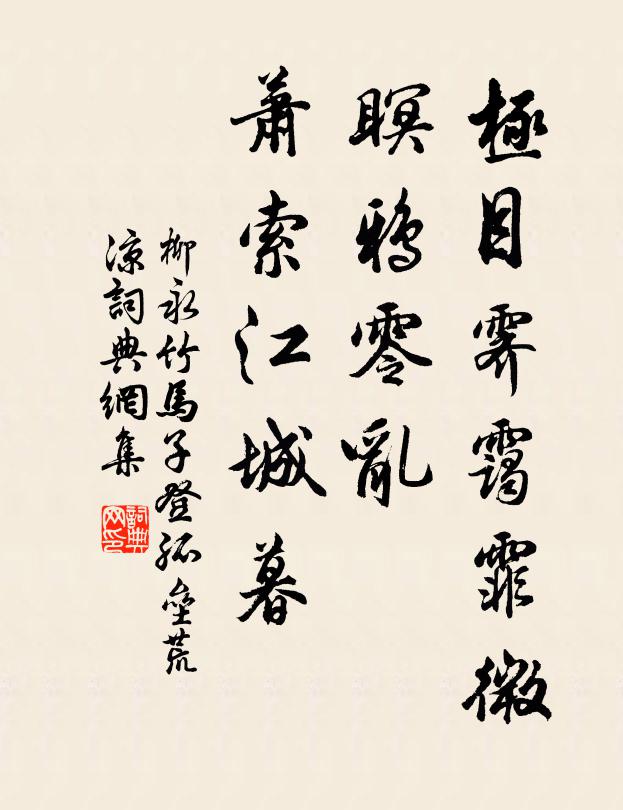 極目霽靄霏微
瞑鴉零亂
蕭索江城暮
柳永竹馬子登孤壘荒
涼詞典網集
詞典
网印